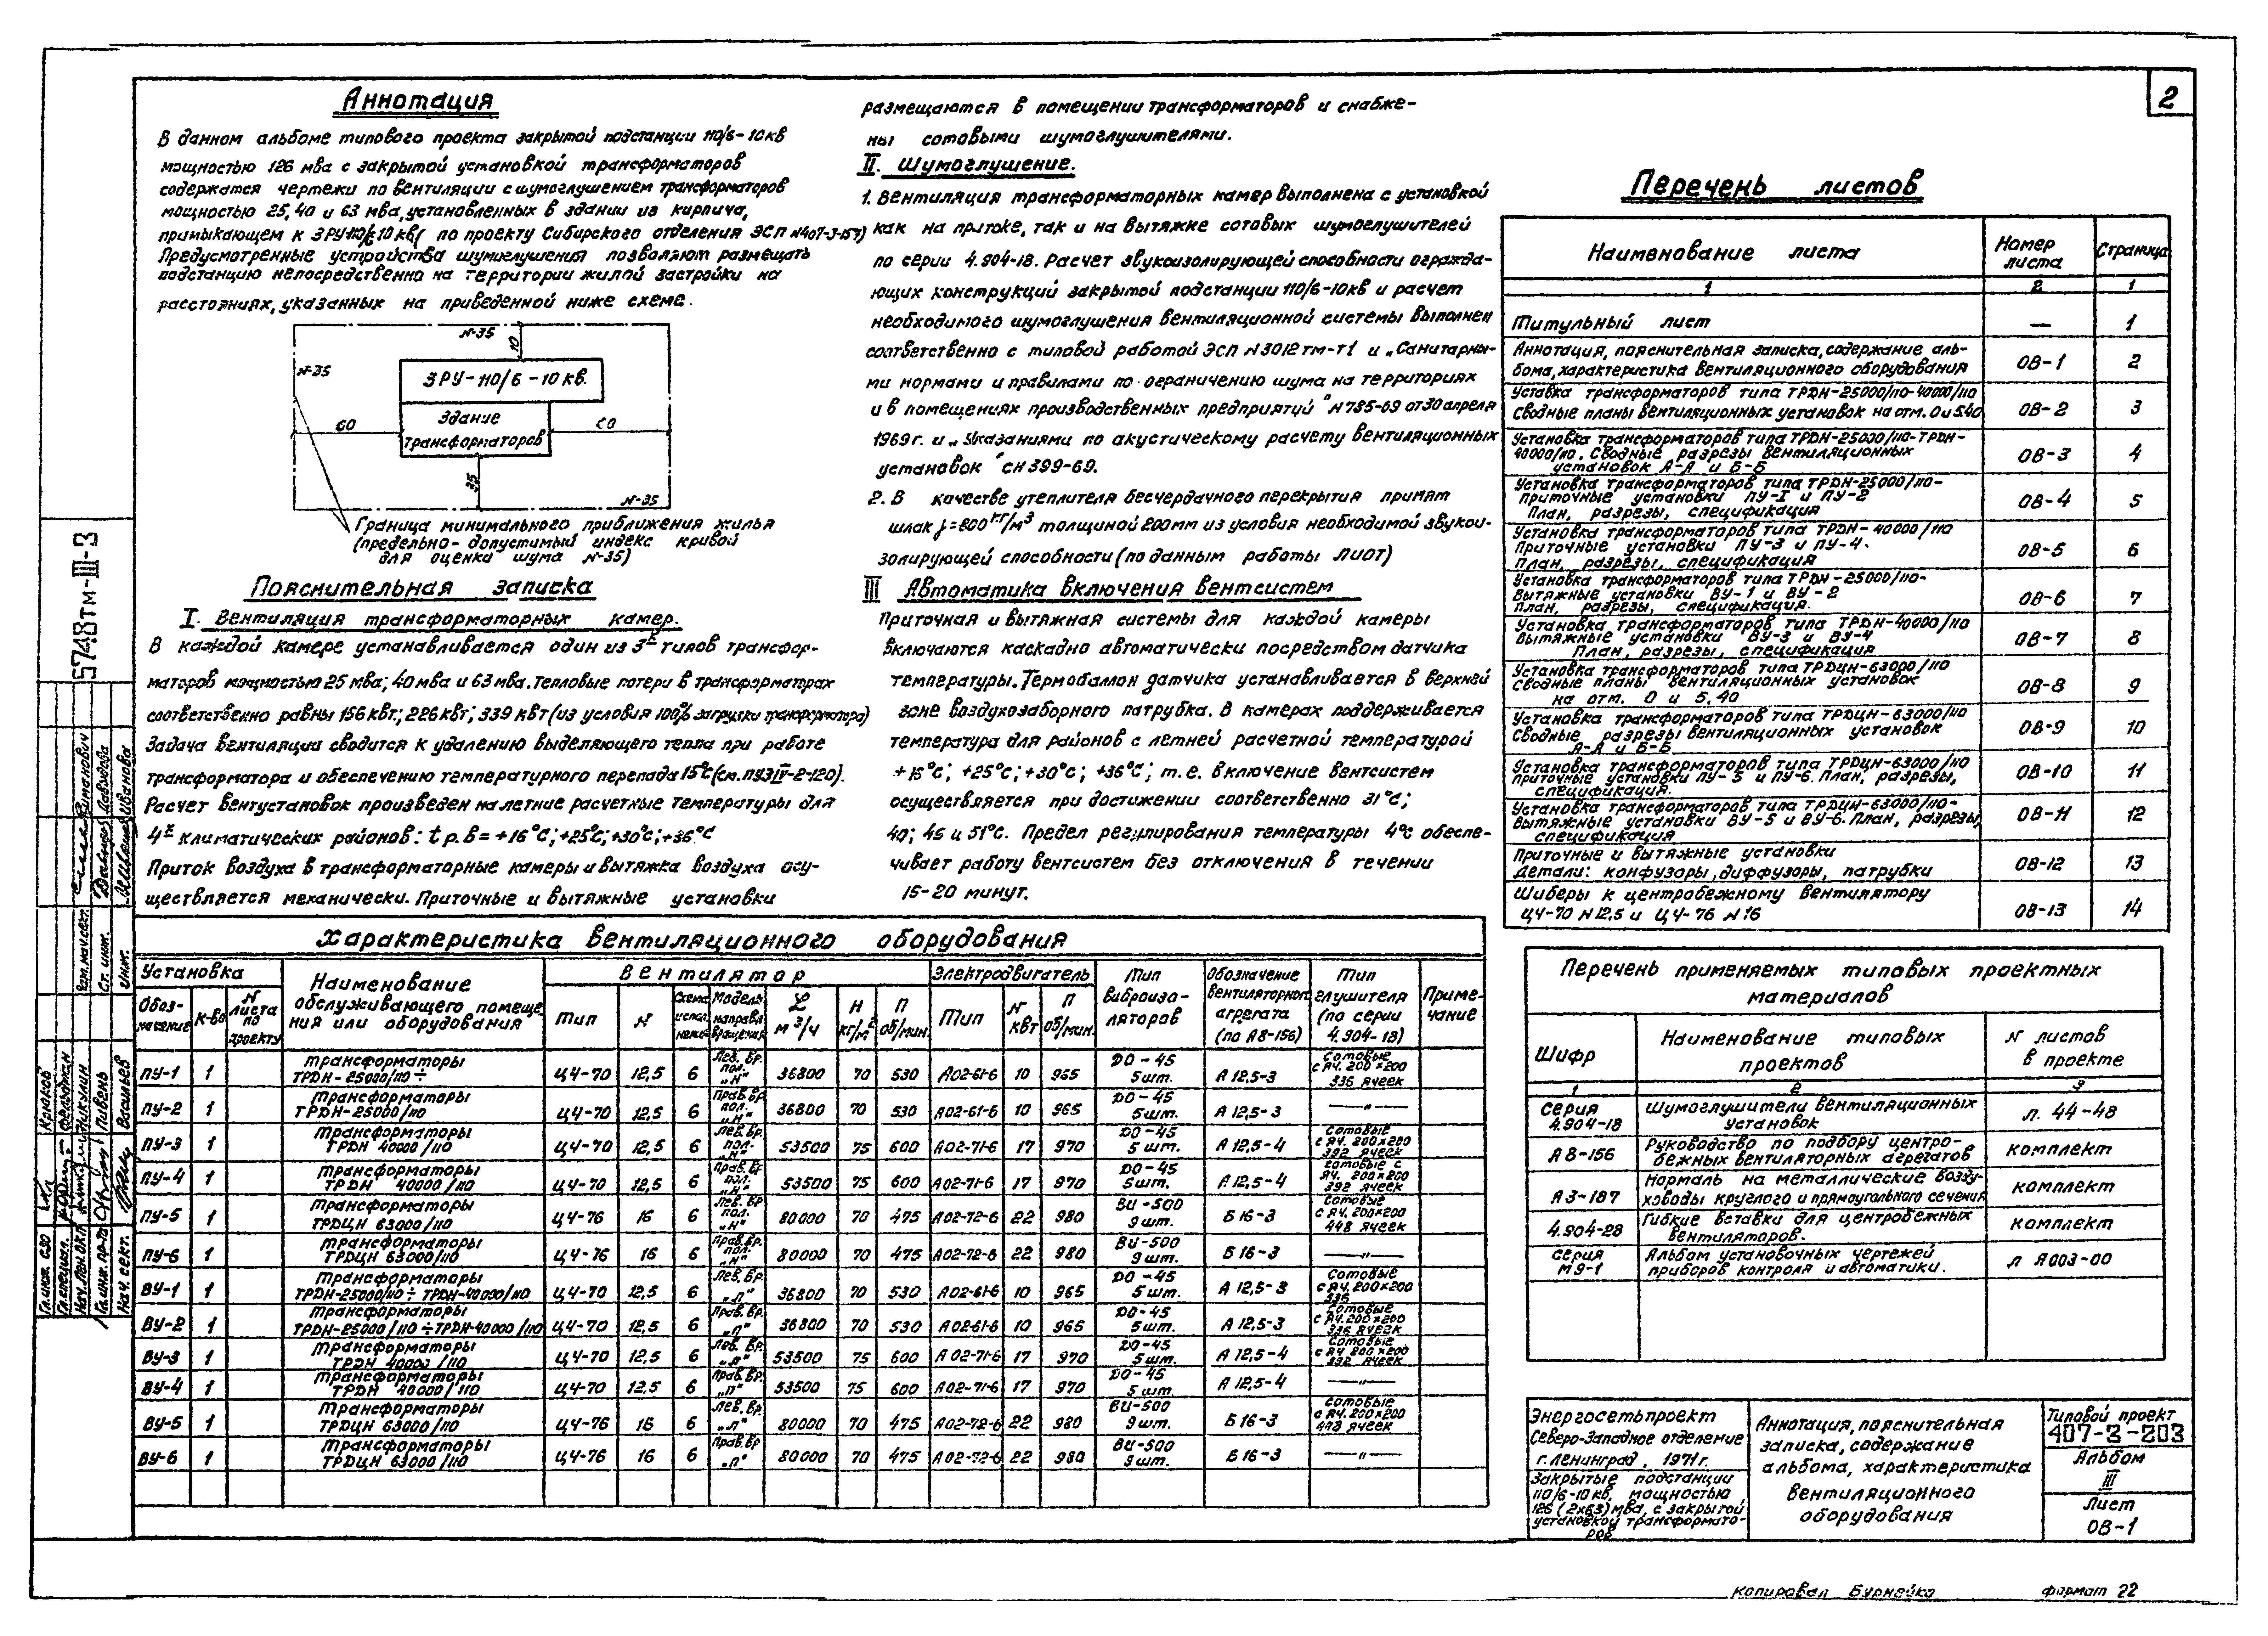 2
Аннотация
В данном альбоме типового проекта закрытой подстанции 110/6-10кв
мощностью 126 мва с закрытой установкой трансформаторов
содержатся чертежи по вентиляции с шумоглушением трансформаторов
мощностью 25, 40 и 63 мва, установленных в здании из кирпича,
примыкающем к ЗРУ 110/6-10 кв (по проекту Сибирского отделения ЭСП №407-3-157)
Предусмотренные устройства шумоглушения позволяют размещать
подстанцию непосредственно на территории жилой застройки на
расстояниях, указанных на приведенной ниже схеме.
N-35
10
N-35
ЗРУ-110/6-10 кв.
Здание
трансформаторов
60
60
35
N-35
Граница минимального приближения жилья
(предельно-допустимый индекс кривой
для оценка шума N-35)
Пояснительная записка
I. Вентиляция трансформаторных камер.
В каждой камере устанавливается один из 3х типов трансфор-
маторов мощностью 25 мва; 40мва и 63 мва. Тепловые потери в трансформаторах
соответственно равны 156 квт.; 226 квт; 339 квт (из условия 100% загрузки трансформатора)
Задача вентиляции сводится к удалению выделяющего тепла при работе
трансформатора и обеспечению температурного перепада 15°с (см. ПУЭ IV-2-120).
Расчет вентустановок произведен на летние расчетные температуры для
4х климатических районов: t р.в = +16°с; +25°с; +30°с; +36°с
Приток воздуха в трансформаторные камеры и вытяжка воздуха осу-
ществляется механически. Приточные и вытяжные установки
размещаются в помещении трансформаторов и снабже-
ны сотовыми шумоглушителями.
II. Шумоглушение.
1. Вентиляция трансформаторных камер выполнена с установкой
как на притоке, так и на вытяжке сотовых шумоглушителей
по серии 4.904-18. Расчет звукоизолирующей способности огражда-
ющих конструкций закрытой подстанции 110/6-10кв и расчет
необходимого шумоглушения вентиляционной системы выполнен
соответственно с типовой работой ЭСП N 3012 тм-т1 и „Санитарны-
ми нормами и правилами по ограничению шума на территориях
и в помещениях производственных предприятий" N 785-69 от 30 апреля
1969 г. и „Указаниями по акустическому расчету вентиляционных
установок" СН 399-69.
2. В качестве утеплителя бесчердачного перекрытия принят
шлак γ=800 кг/м³ толщиной 200мм из условия необходимой звукои-
золирующей способности (по данным работы ЛИОТ)
III Автоматика включения вентсистем
Приточная и вытяжная системы для каждой камеры
включаются каскадно автоматически посредством датчика
температуры. Термобаллон датчика устанавливается в верхней
зоне воздухозаборного патрубка. В камерах поддерживается
температура для районов с летней расчетной температурой
+15°с; +25°с; +30°с; +36°с; т.е. включение вентсистем
осуществляется при достижении соответственно 31°с;
40; 45 и 51°с. Предел регулирования температуры 4°с обеспе-
чивает работу вентсистем без отключения в течении
15-20 минут.
Перечень листов
Наименование листа Номер листа Страница
1 2 1
Титульный лист — 1
Аннотация, пояснительная записка, содержание аль-
бома, характеристика вентиляционного оборудования ОВ-1 2
Уставка трансформаторов типа ТРДН-25000/110-40000/110
Сводные планы вентиляционных установок на отм. 0 и 5.40 ОВ-2 3
Установка трансформаторов типа ТРДН-25000/110-ТРДН-
40000/110. Сводные разрезы вентиляционных
установок А-А и Б-Б ОВ-3 4
Установка трансформаторов типа ТРДН-25000/110-
Приточные установки ПУ-1 и ПУ-2
План, разрезы, спецификация ОВ-4 5
Установка трансформаторов типа ТРДН-40000/110
Приточные установки ПУ-3 и ПУ-4.
План, разрезы, спецификация ОВ-5 6
Установка трансформаторов типа ТРДН-25000/110-
Вытяжные установки ВУ-1 и ВУ-2
План, разрезы, спецификация. ОВ-6 7
Установка трансформаторов типа ТРДН-40000/110
Вытяжные установки ВУ-3 и ВУ-4
План, разрезы, спецификация ОВ-7 8
Установка трансформаторов типа ТРДЦН-63000/110
Сводные планы вентиляционных установок
на отм. 0 и 5,40 ОВ-8 9
Установка трансформаторов типа ТРДЦН-63000/110
Сводные разрезы вентиляционных установок
А-А и Б-Б ОВ-9 10
Установка трансформаторов типа ТРДЦН-63000/110
Приточные установки ПУ-5 и ПУ-6. План, разрезы,
спецификация. ОВ-10 11
Установка трансформаторов типа ТРДЦН-63000/110-
Вытяжные установки ВУ-5 и ВУ-6. План, разрезы,
спецификация ОВ-11 12
Приточные и вытяжные установки
Детали: конфузоры, диффузоры, патрубки ОВ-12 13
Шиберы к центробежному вентилятору
Ц4-70 N 12,5 и Ц4-76 N 16 ОВ-13 14
Характеристика вентиляционного оборудования
Установка Наименование обслуживающего помеще ния или оборудования Вентилятор Электродвигатель Тип виброизо-ляторов Обозначение вентиляторного агрегата (по А8-156) Тип глушителя (по серии 4.904-18) Приме-чание
Обоз-начение к-во N листа по проекту Тип N Схема испол-нения Модель, направл вращения L м³/ч Н кг/м² П об/мин. Тип N квт П об/мин.
ПУ-1 1 Трансформаторы ТРДН-25000/110 ÷ Ц4-70 12,5 6 Лев. вр. пол. „Н" 36800 70 530 А02-61-6 10 965 ДО-45 5 шт. А 12,5-3 Сотовые с яч. 200×200 336 ячеек
ПУ-2 1 Трансформаторы ТРДН-25000/110 Ц4-70 12,5 6 Прав. вр пол. „Н" 36800 70 530 А02-61-6 10 965 ДО-45 5 шт. А 12,5-3 —„—
ПУ-3 1 Трансформаторы ТРДН 40000/110 Ц4-70 12,5 6 Лев. вр. пол. „Н" 53500 75 600 А02-71-6 17 970 ДО-45 5 шт. А 12,5-4 Сотовые с яч. 200×200 392 ячеек
ПУ-4 1 Трансформаторы ТРДН 40000/110 Ц4-70 12,5 6 Прав. вр пол. „Н" 53500 75 600 А02-71-6 17 970 ДО-45 5 шт. А 12,5-4 Сотовые с яч. 200×200 392 ячеек
ПУ-5 1 Трансформаторы ТРДЦН 63000/110 Ц4-76 16 6 Лев. вр пол. „Н" 80000 70 475 А02-72-6 22 980 ВИ-500 9 шт. Б 16-3 Сотовые с яч. 200×200 448 ячеек
ПУ-6 1 Трансформаторы ТРДЦН 63000/110 Ц4-76 16 6 Прав. вр. пол. „Н" 80000 70 475 А02-72-6 22 980 ВИ-500 9 шт. Б 16-3 —„—
ВУ-1 1 Трансформаторы ТРДН-25000/110 ÷ ТРДН-40000/110 Ц4-70 12,5 6 Лев. вр. „Л" 36800 70 530 А02-61-6 10 965 ДО-45 5 шт. А 12,5-3 Сотовые с яч. 200×200 336
ВУ-2 1 Трансформаторы ТРДН-25000/110 ÷ ТРДН-40000/110 Ц4-70 12,5 6 Прав. вр. „П" 36800 70 530 А02-61-6 10 965 ДО-45 5 шт. А 12,5-3 Сотовые с яч. 200×200 336 ячеек
ВУ-3 1 Трансформаторы ТРДН 40000/110 Ц4-70 12,5 6 Лев. вр. „Л" 53500 75 600 А02-71-6 17 970 ДО-45 5 шт. А 12,5-4 Сотовые с яч 200×200 392 ячеек
ВУ-4 1 Трансформаторы ТРДН 40000/110 Ц4-70 12,5 6 Прав. вр. „П" 53500 75 600 А02-71-6 17 970 ДО-45 5 шт. А 12,5-4 —„—
ВУ-5 1 Трансформаторы ТРДЦН 63000/110 Ц4-76 16 6 Лев. вр. „Л" 80000 70 475 А02-72-6 22 980 ВИ-500 9 шт. Б 16-3 Сотовые с яч. 200×200 448 ячеек
ВУ-6 1 Трансформаторы ТРДЦН 63000/110 Ц4-76 16 6 Прав. вр „П" 80000 70 475 А02-72-6 22 980 ВИ-500 9 шт. Б 16-3 —„—
Перечень применяемых типовых проектных
материалов
Шифр Наименование типовых проектов N листов в проекте
1 2 3
Серия 4.904-18 Шумоглушители вентиляционных установок л. 44-48
А8-156 Руководство по подбору центро-бежных вентиляторных агрегатов комплект
А3-187 Нормаль на металлические возду-ховоды круглого и прямоугольного сечения комплект
4.904-28 Гибкие вставки для центробежных вентиляторов. комплект
Серия М9-1 Альбом установочных чертежей приборов контроля и автоматики. л А003-00
Энергосетьпроект
Северо-Западное отделение
г. Ленинград, 1971г.
Закрытые подстанции
110/6-10 кв, мощностью
126 (2×63) мва, с закрытой
установкой трансформато-
ров
Аннотация, пояснительная
записка, содержание
альбома, характеристика
вентиляционного
оборудования
Типовой проект
407-3-203
Альбом
III
Лист
ОВ-1
Копировал Бурнейко формат 22
5748тм-III-3
Гл. инж. СЗО Крюков
Гл. специал. Фельдман
Нач. Лен. ОКП Никулин
Гл. инж. пр-та Ливень
Нач. сект. Васильев
Зам. нач. сект.
Ст. инж. Давыдова
Инж. Иванова